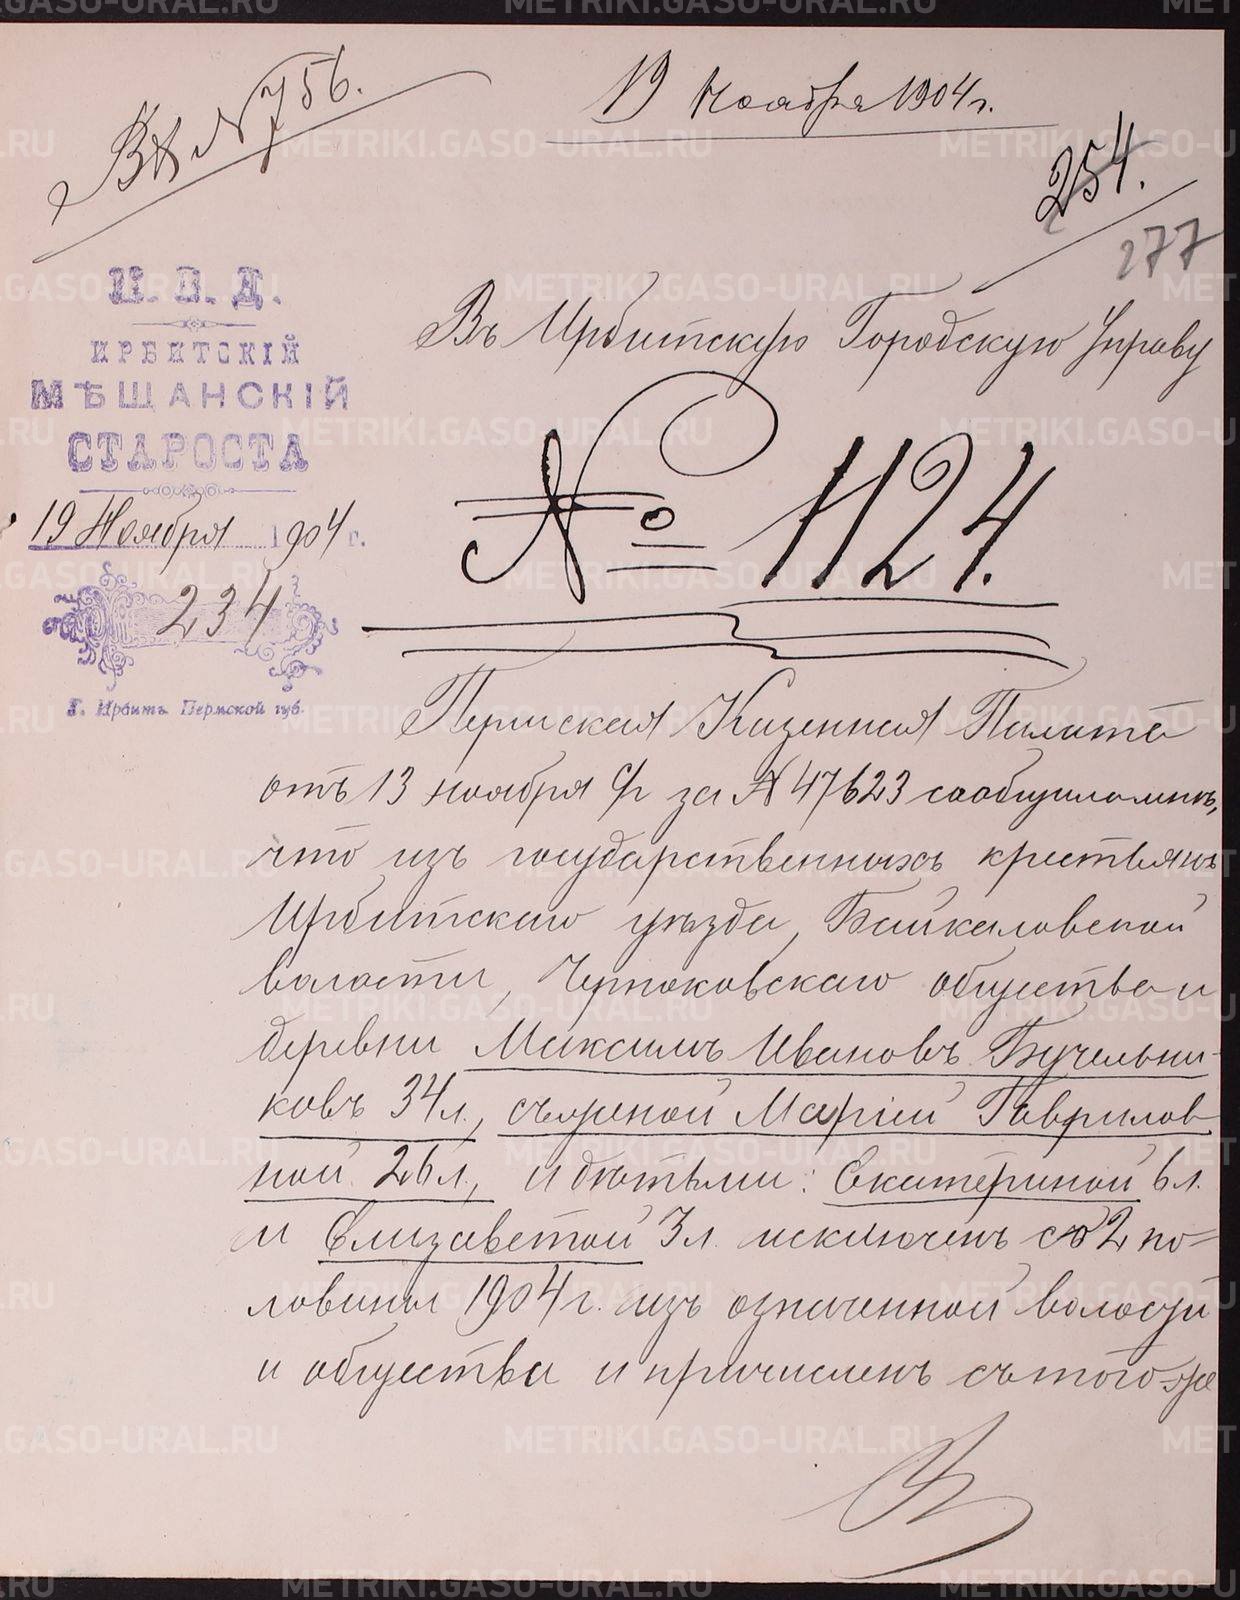 Вх № 756.
19 Ноября 1904 г.
254.
277
М. В. Д.
ИРБИТСКІЙ
МѢЩАНСКІЙ
СТАРОСТА
19 Ноября 1904 г.
234
Г. Ирбитъ Пермской губ.
Въ Ирбитскую Городскую Управу
№ 1124.
Пермская Казенная Палата
отъ 13 ноября с/г за № 47623 сообщила мнѣ,
что изъ государственныхъ крестьянъ
Ирбитскаго уѣзда, Байкаловской
волости, общества и
деревни Максимъ Ивановъ Бучельни-
ковъ 34 л., съ женой Маріей Гаврилов
ной 26 л., и дѣтьми: Екатериной 6 л.
и Елизаветой 3 л. исключенъ со 2 по-
ловины 1904 г. изъ означенной волости
и общества и причисленъ съ того-же
METRIKI.GASO-URAL.RU